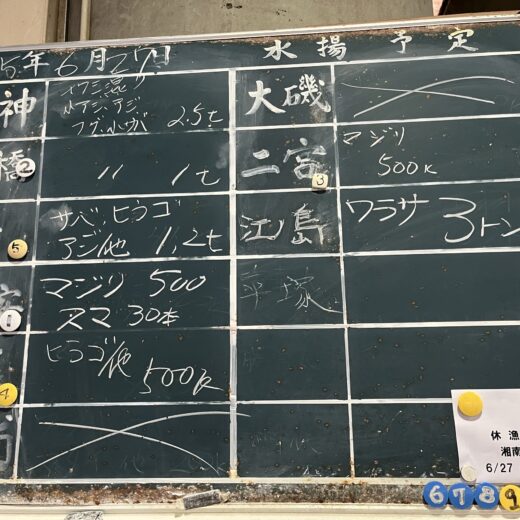 5年6月27日 水揚予定
神
小アジ、アジ
2.5t
大磯
橋 ②
〃 1t
二宮 ③
マジリ
500K
⑤
サバ、ヒラゴ
アジ他 1,2t
江島
ワラサ 3トン
①
マジリ 500
スマ 30本
平塚
④
ヒラゴ他
500K
休漁
湘南
6/27
6 7 8 9